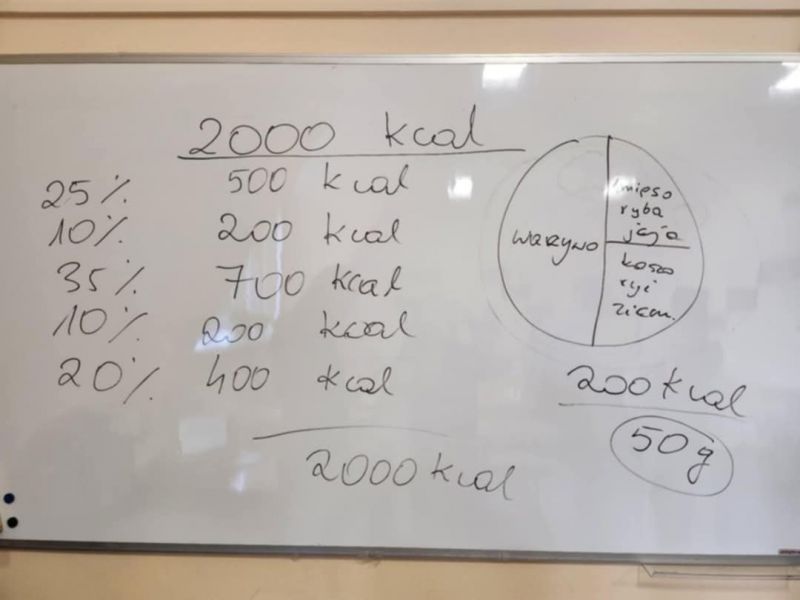 2000 kcal
25% 500 kcal
10% 200 kcal
35% 700 kcal
10% 200 kcal
20% 400 kcal
2000 kcal
warzywo
mięso
ryba
jaja
ryż
ziem.
200 kcal
50g